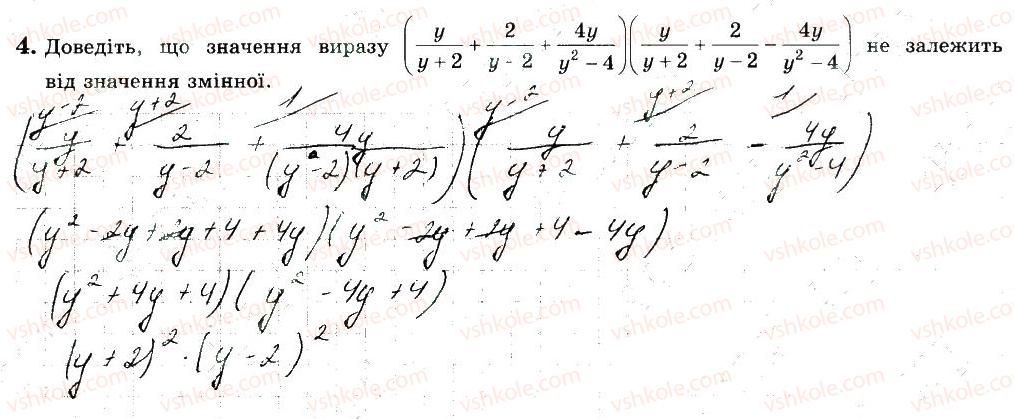 4. Доведіть, що значення виразу (y/(y + 2) + 2/(y - 2) + 4y/(y² - 4))(y/(y + 2) + 2/(y - 2) - 4y/(y² - 4)) не залежить
від значення змінної.
y-2 y+2 1 y-2 y+2 1
(y/(y+2) + 2/(y-2) + 4y/((y-2)(y+2)))(y/(y+2) + 2/(y-2) - 4y/(y²-4))
(y² - 2y + 2y + 4 + 4y)(y² - 2y + 2y + 4 - 4y)
(y² + 4y + 4)(y² - 4y + 4)
(y + 2)² · (y - 2)²
vshkole.com